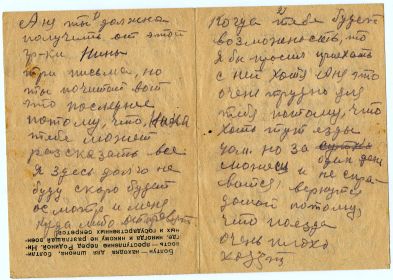 Аня ты должна
получить от этой
гр-ки Нины
три письма, но
ты почитай вот
это последнее
потому, что Нина
тебе может
рассказать все.
Я здесь долго не
буду, скоро будет
осмотр и меня
куда либо отправят
Болтун - находка для шпиона.
ность - преступление перед Родиной. Ни-
где, никогда и никому не разглашай воен-
ных и государственных секретов.
2)
когда тебе будет
возможность, то
я бы просил приехать
с ней хотя Аня это
очень трудно для
тебя потому, что
хоть тут езды
час. но за
один день
сможешь и не спра-
вится, вернуться
домой потому,
что поезда
очень плохо
ходят